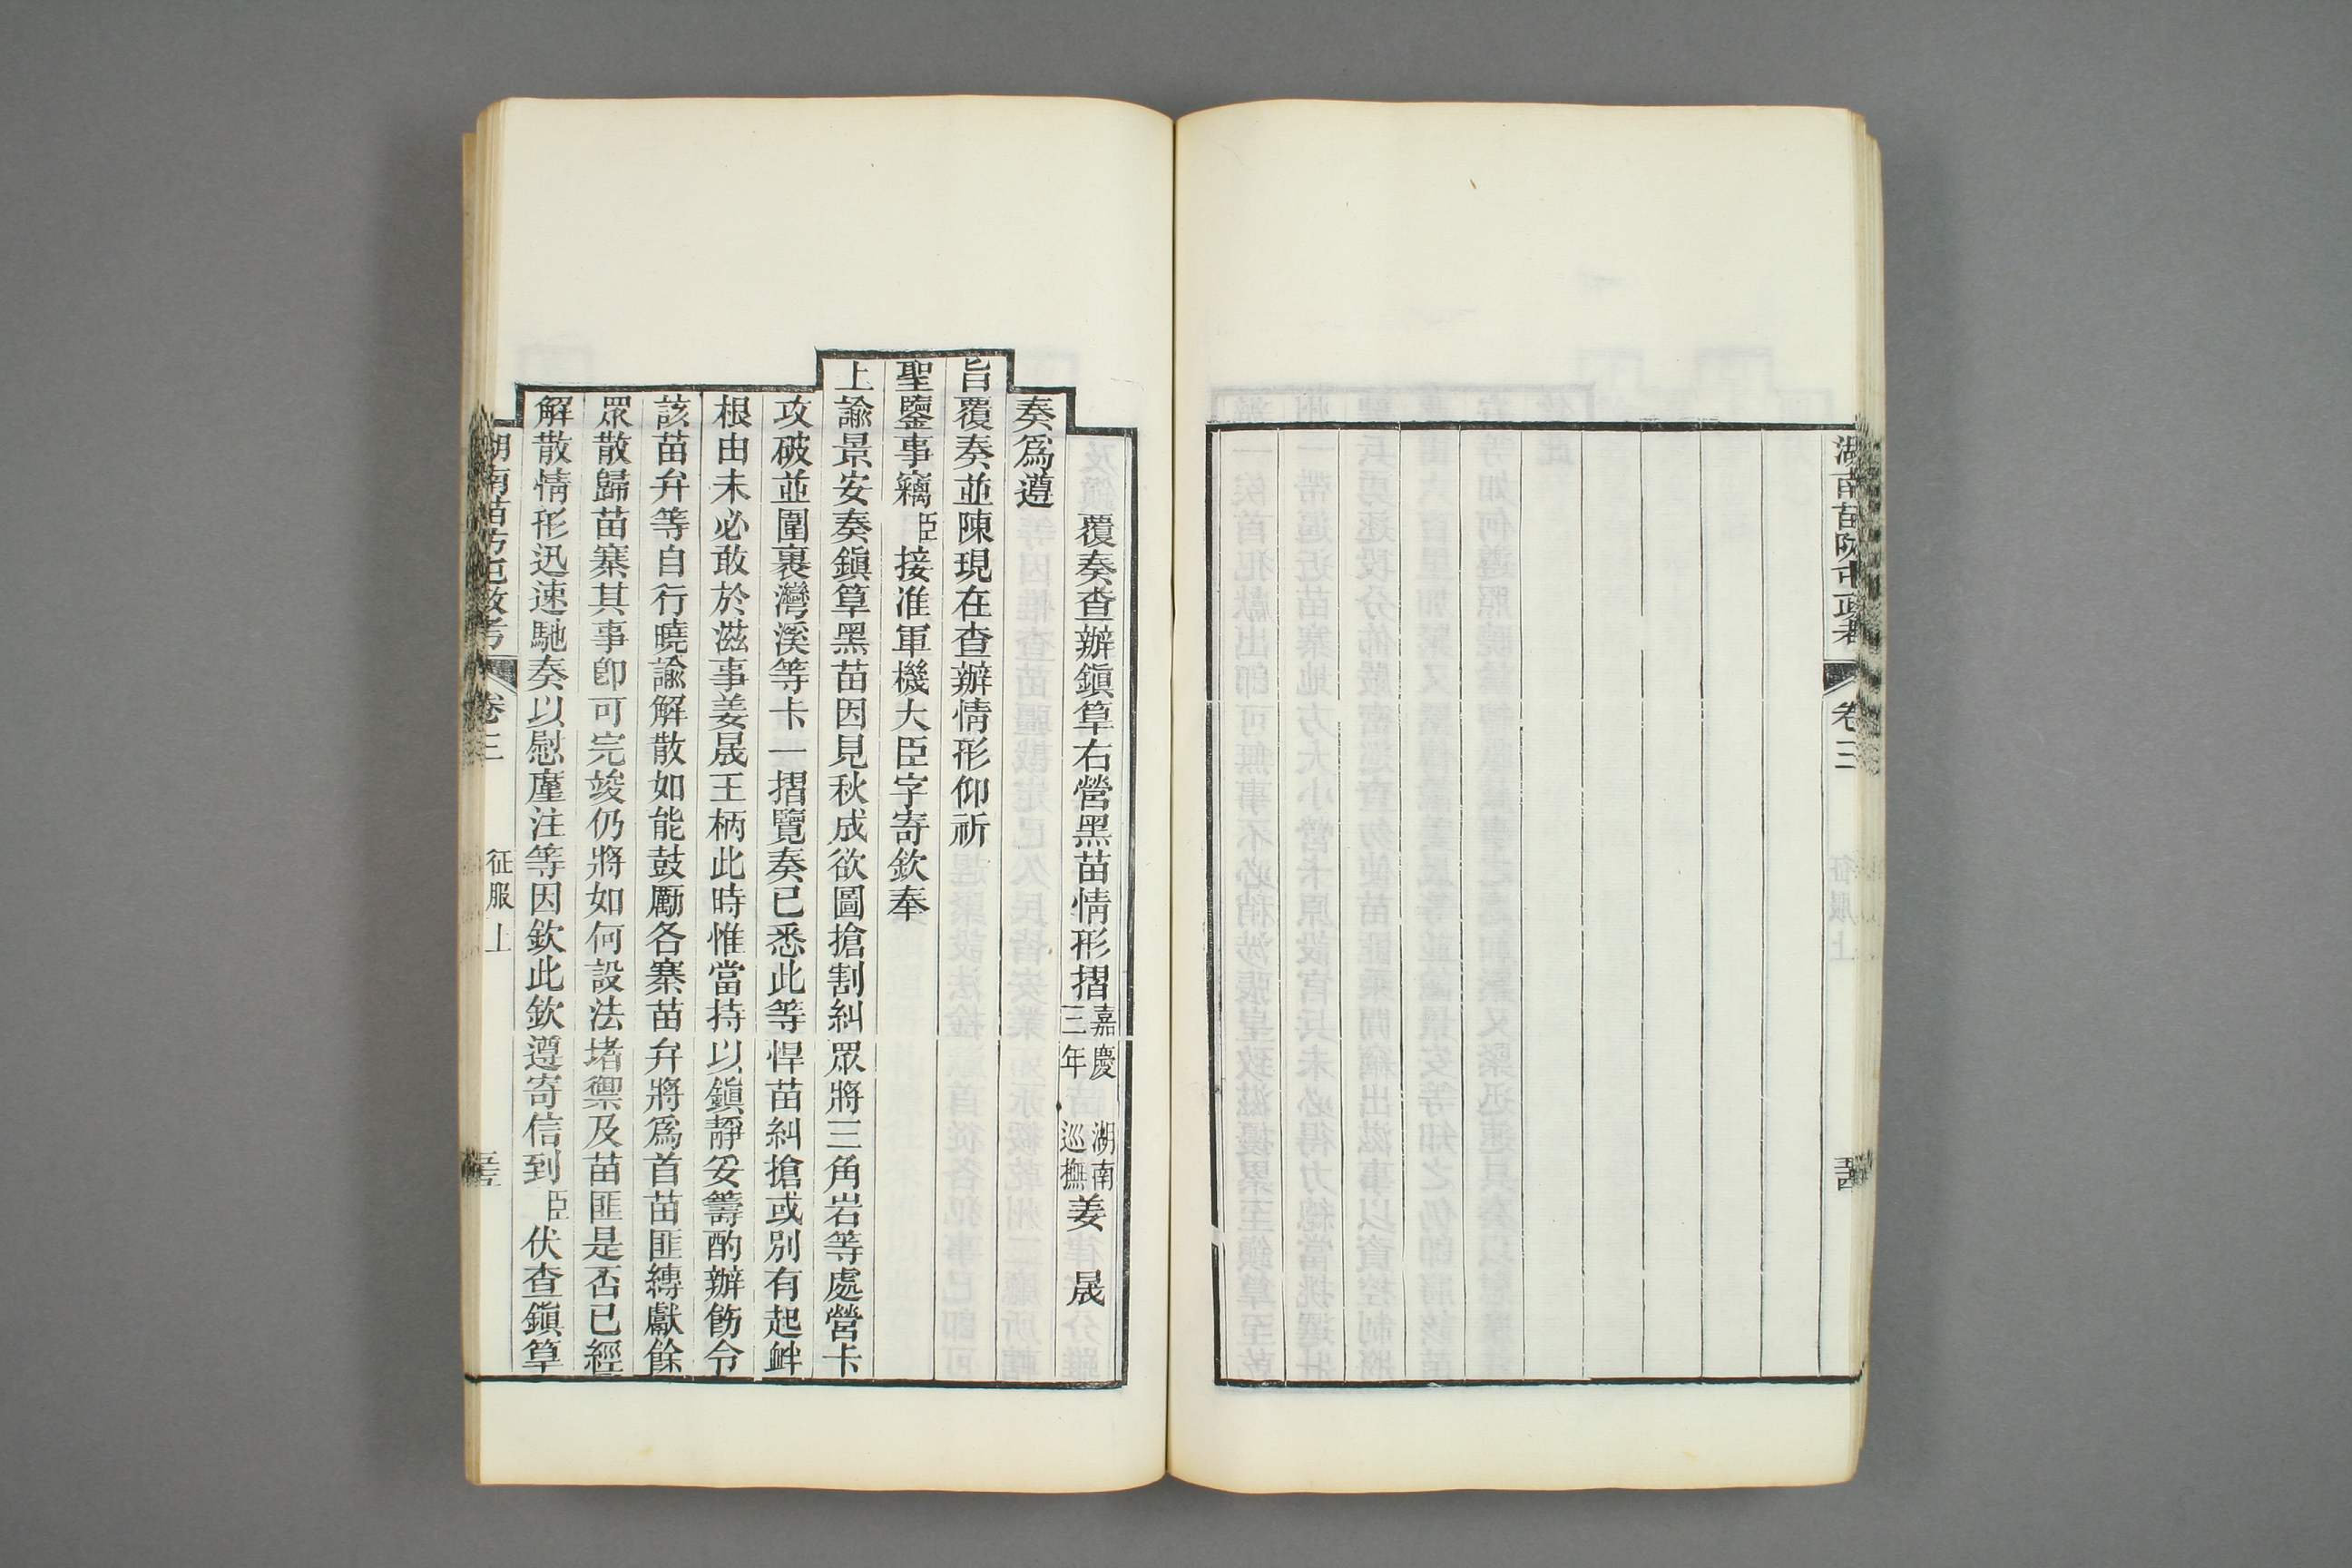 湖南苗防屯政考 卷三 征服上
覆奏查辦鎮筸右營黑苗情形摺 嘉慶三年 湖南巡撫 姜晟
奏爲遵
旨覆奏並陳現在查辦情形仰祈
聖鑒事竊臣接准軍機大臣字寄欽奉
上諭景安奏鎮筸黑苗因見秋成欲圖搶割糾眾將三角岩等處營卡
攻破並圍裹灣溪等卡一摺覽奏已悉此等悍苗糾搶或別有起衅
根由未必敢於滋事姜晟王柄此時惟當持以鎮靜妥籌酌辦飭令
該苗弁等自行曉諭解散如能鼓勵各寨苗弁將爲首苗匪縛獻餘
眾散歸苗寨其事卽可完竣仍將如何設法堵禦及苗匪是否已經
解散情形迅速馳奏以慰廑注等因欽此欽遵寄信到臣伏查鎮筸
湖南苗防屯政考 卷三 征服上